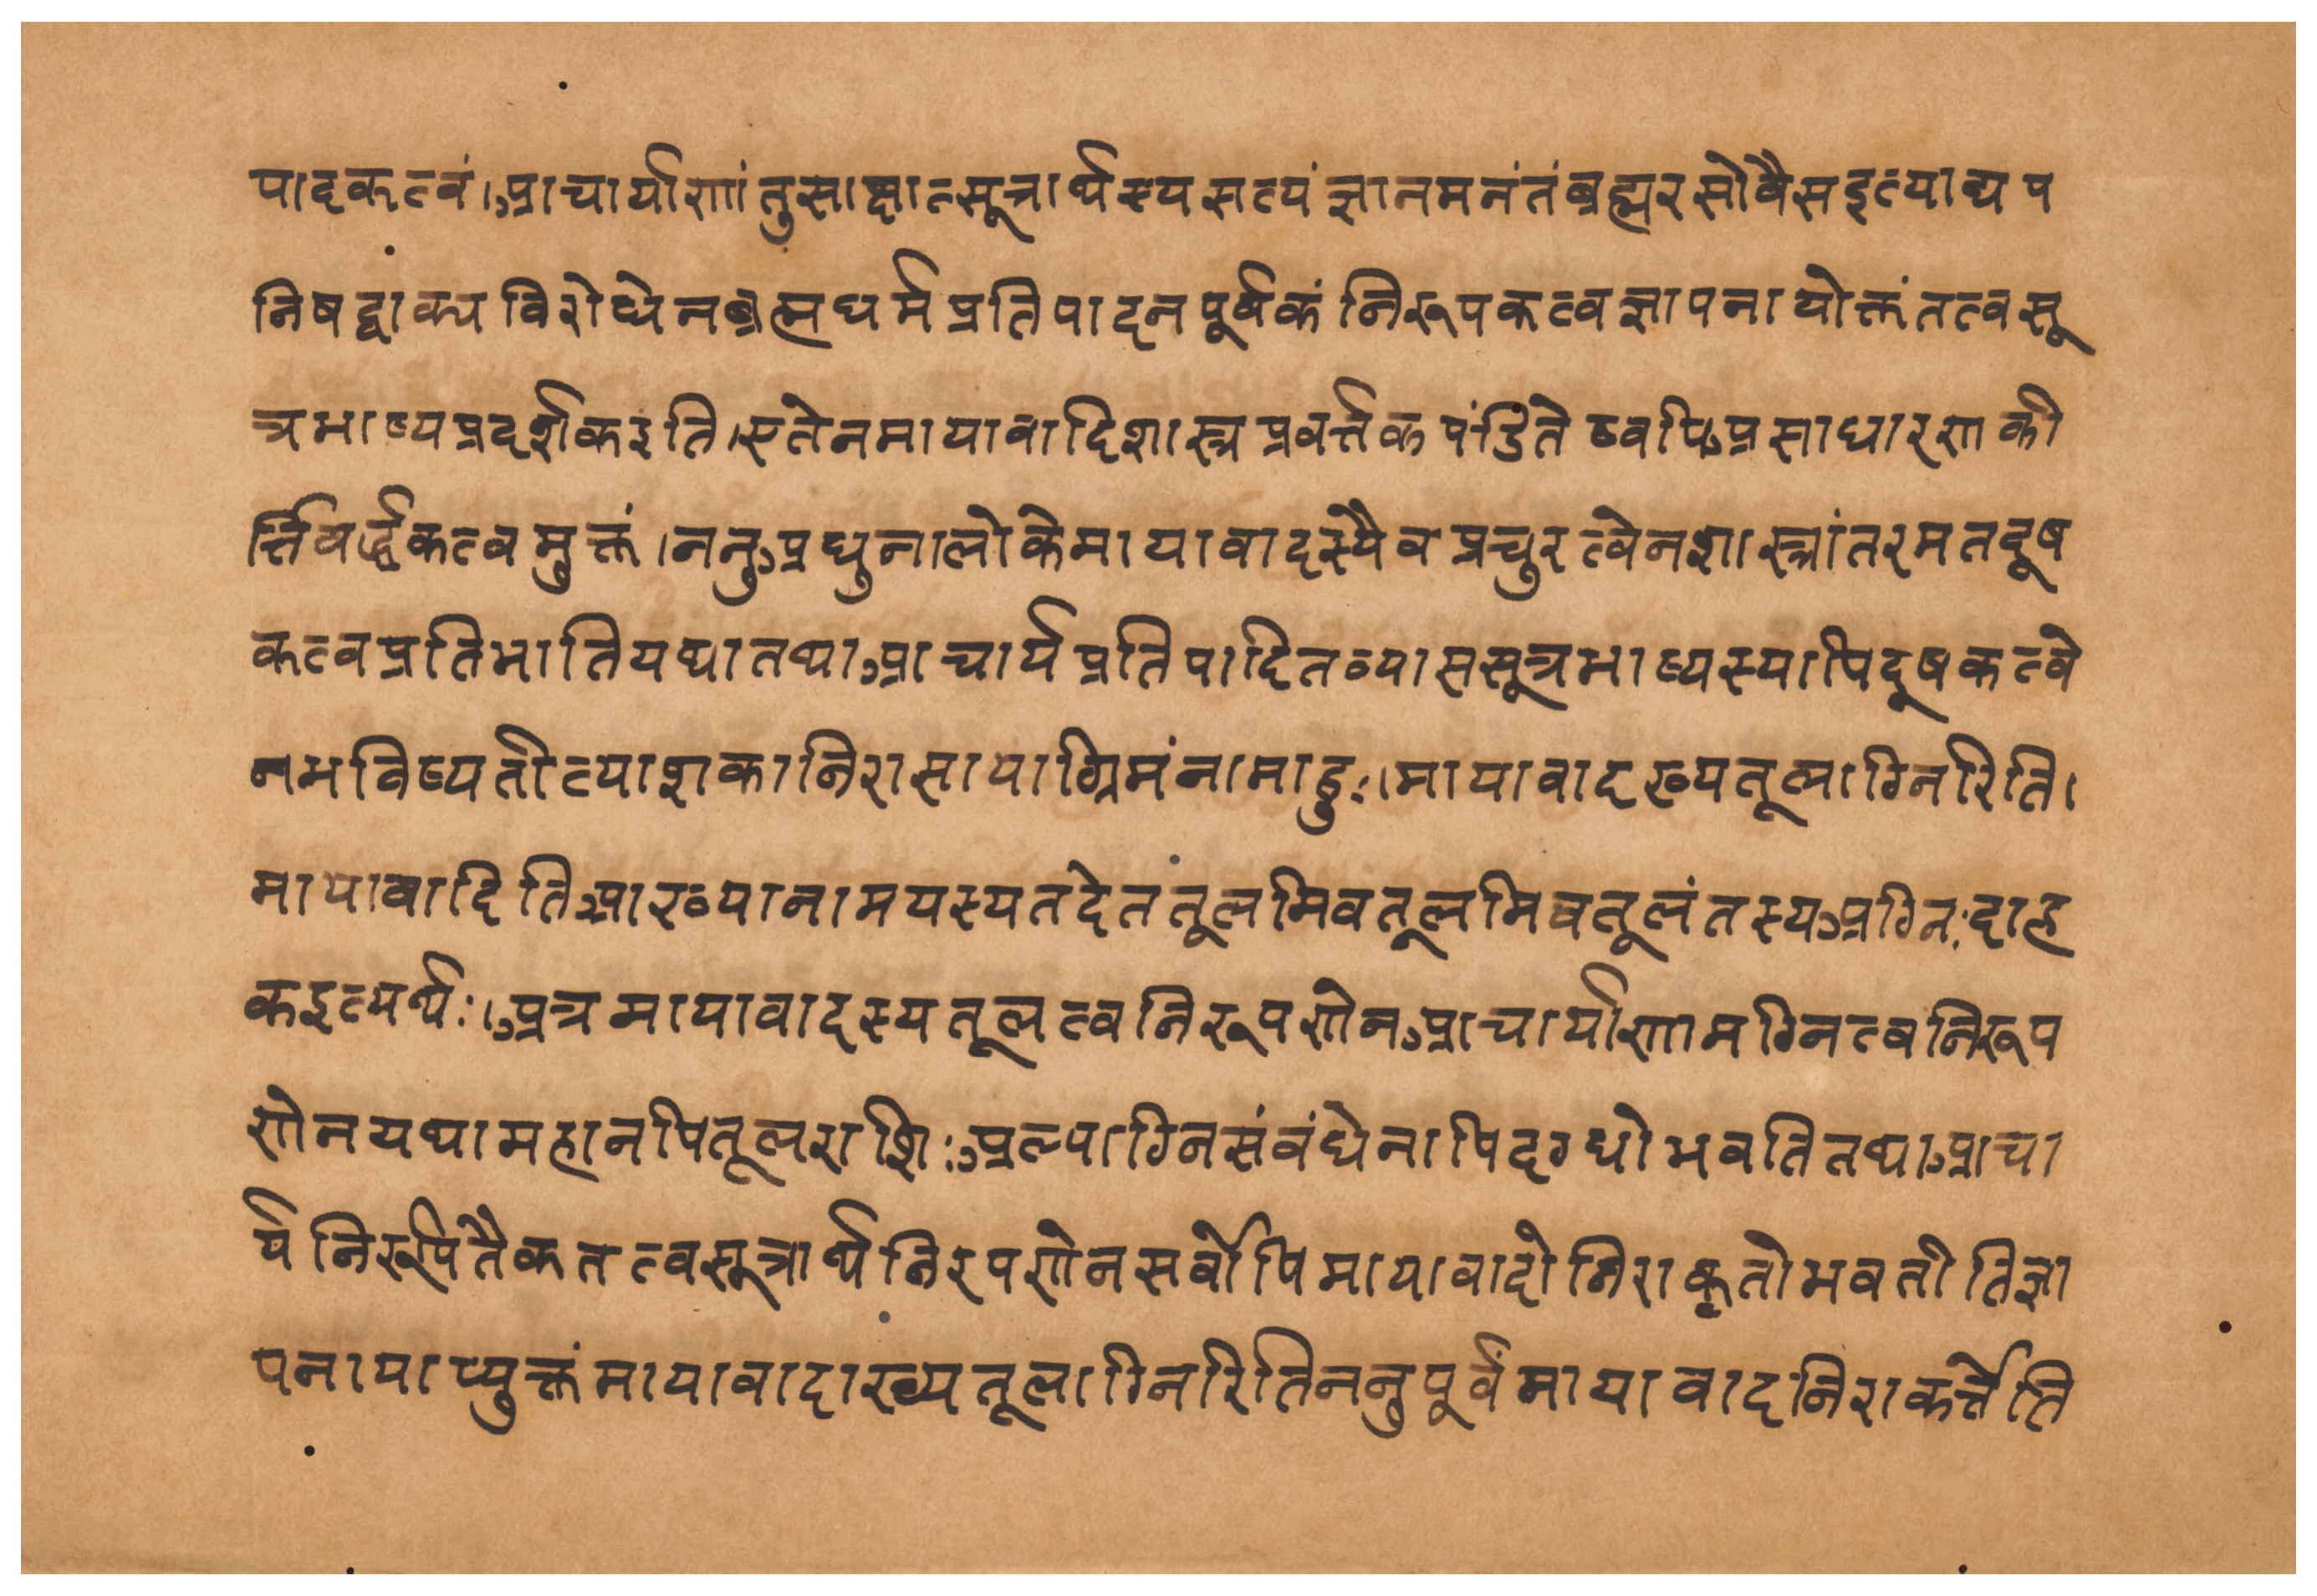 पादकत्वं।आचार्याणांतुसाक्षात्सूत्रार्थस्यसत्यंज्ञानमनंतंब्रह्मरसोवैसइत्याद्यप
निषद्वाक्यविरोधेनब्रह्मधर्मप्रतिपादनपूर्वकंनिरूपकत्वज्ञापनायोक्तंतत्वसू
त्रभाष्यप्रदर्शकइति।एतेनमायावादिशास्त्रप्रवर्त्तकपंडितेष्वपिअसाधारणकी
र्त्तिवर्द्धकत्वमुक्तं।ननुअधुनालोकेमायावादस्यैवप्रचुरत्वेनशास्त्रांतरमतदूष
कत्वप्रतिभातियथातथाआचार्यप्रतिपादितव्याससूत्रभाष्यस्यापिदूषकत्वे
नभविष्यतीत्याशकानिरासायाग्रिमंनामाहुः।मायावादख्यतूलाग्निरिति।
मायावादितिआख्यानामयस्यतदेततूलमिवतूलमिवतूलंतस्यअग्निःदाह
कइत्यर्थः।अत्रमायावादस्यतूलत्वनिरूपणेनआचार्याणामग्नित्वनिरूप
णेनयथामहानपितूलराशिःअल्पाग्निसंबंधेनापिदग्धोभवतितथाआचा
र्यनिरूपितैकतत्वसूत्रार्थनिरपणेनसर्वोपिमायावादोनिराकृतोभवतीतिज्ञा
पनायाप्युक्तंमायावादाख्यतूलाग्निरितिननुपूर्वंमायावादनिराकर्त्तेति